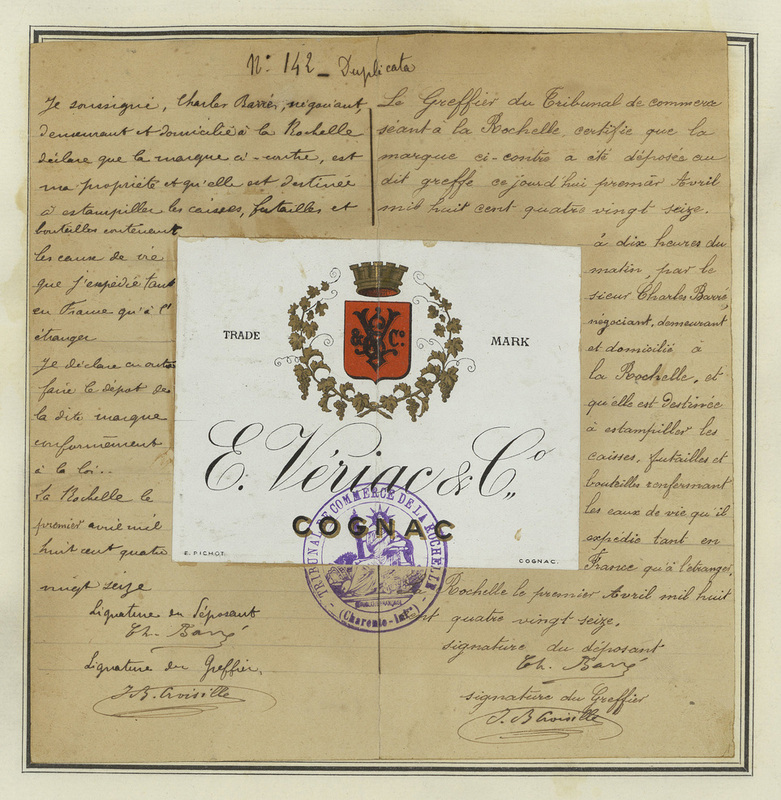 N: 142 - Duplicata
Je soussigné, Charles Barré, négociant,
demeurant et domicilié à la Rochelle
déclare que la marque ci-contre, est
ma propriété et qu'elle est destinée
à estampiller les caisses, futailles et
bouteilles contenant
les eaux de vie
que j'expédie tant
en France qu'à l'
étranger
Je déclare en outre
faire le dépôt de
la dite marque
conformément
à la loi..
La Rochelle le
premier avril mil
huit cent quatre
vingt seize
Signature du Déposant
Ch. Barré
Signature du Greffier,
J. B. Croisille
Le Greffier du Tribunal de commerce
séant à la Rochelle, certifie que la
marque ci-contre a été déposée au
dit greffe ce jourd'hui premier Avril
mil huit cent quatre vingt seize.
à dix heures du
matin, par le
sieur Charles Barré,
négociant, demeurant
et domicilié à
la Rochelle, et
qu'elle est destinée
à estampiller les
caisses, futailles et
bouteilles renfermant
les eaux de vie qu'il
expédie tant en
France qu'à l'étranger.
Rochelle le premier Avril mil huit
nt quatre vingt seize.
signature du déposant
Ch. Barré
signature du Greffier
J. B Croisille
TRADE
MARK
& Co.
E. Vériac & Co.,
COGNAC
E. PICHOT.
COGNAC.
TRIBUNAL DE COMMERCE DE LA ROCHELLE
(Charente-Infre)